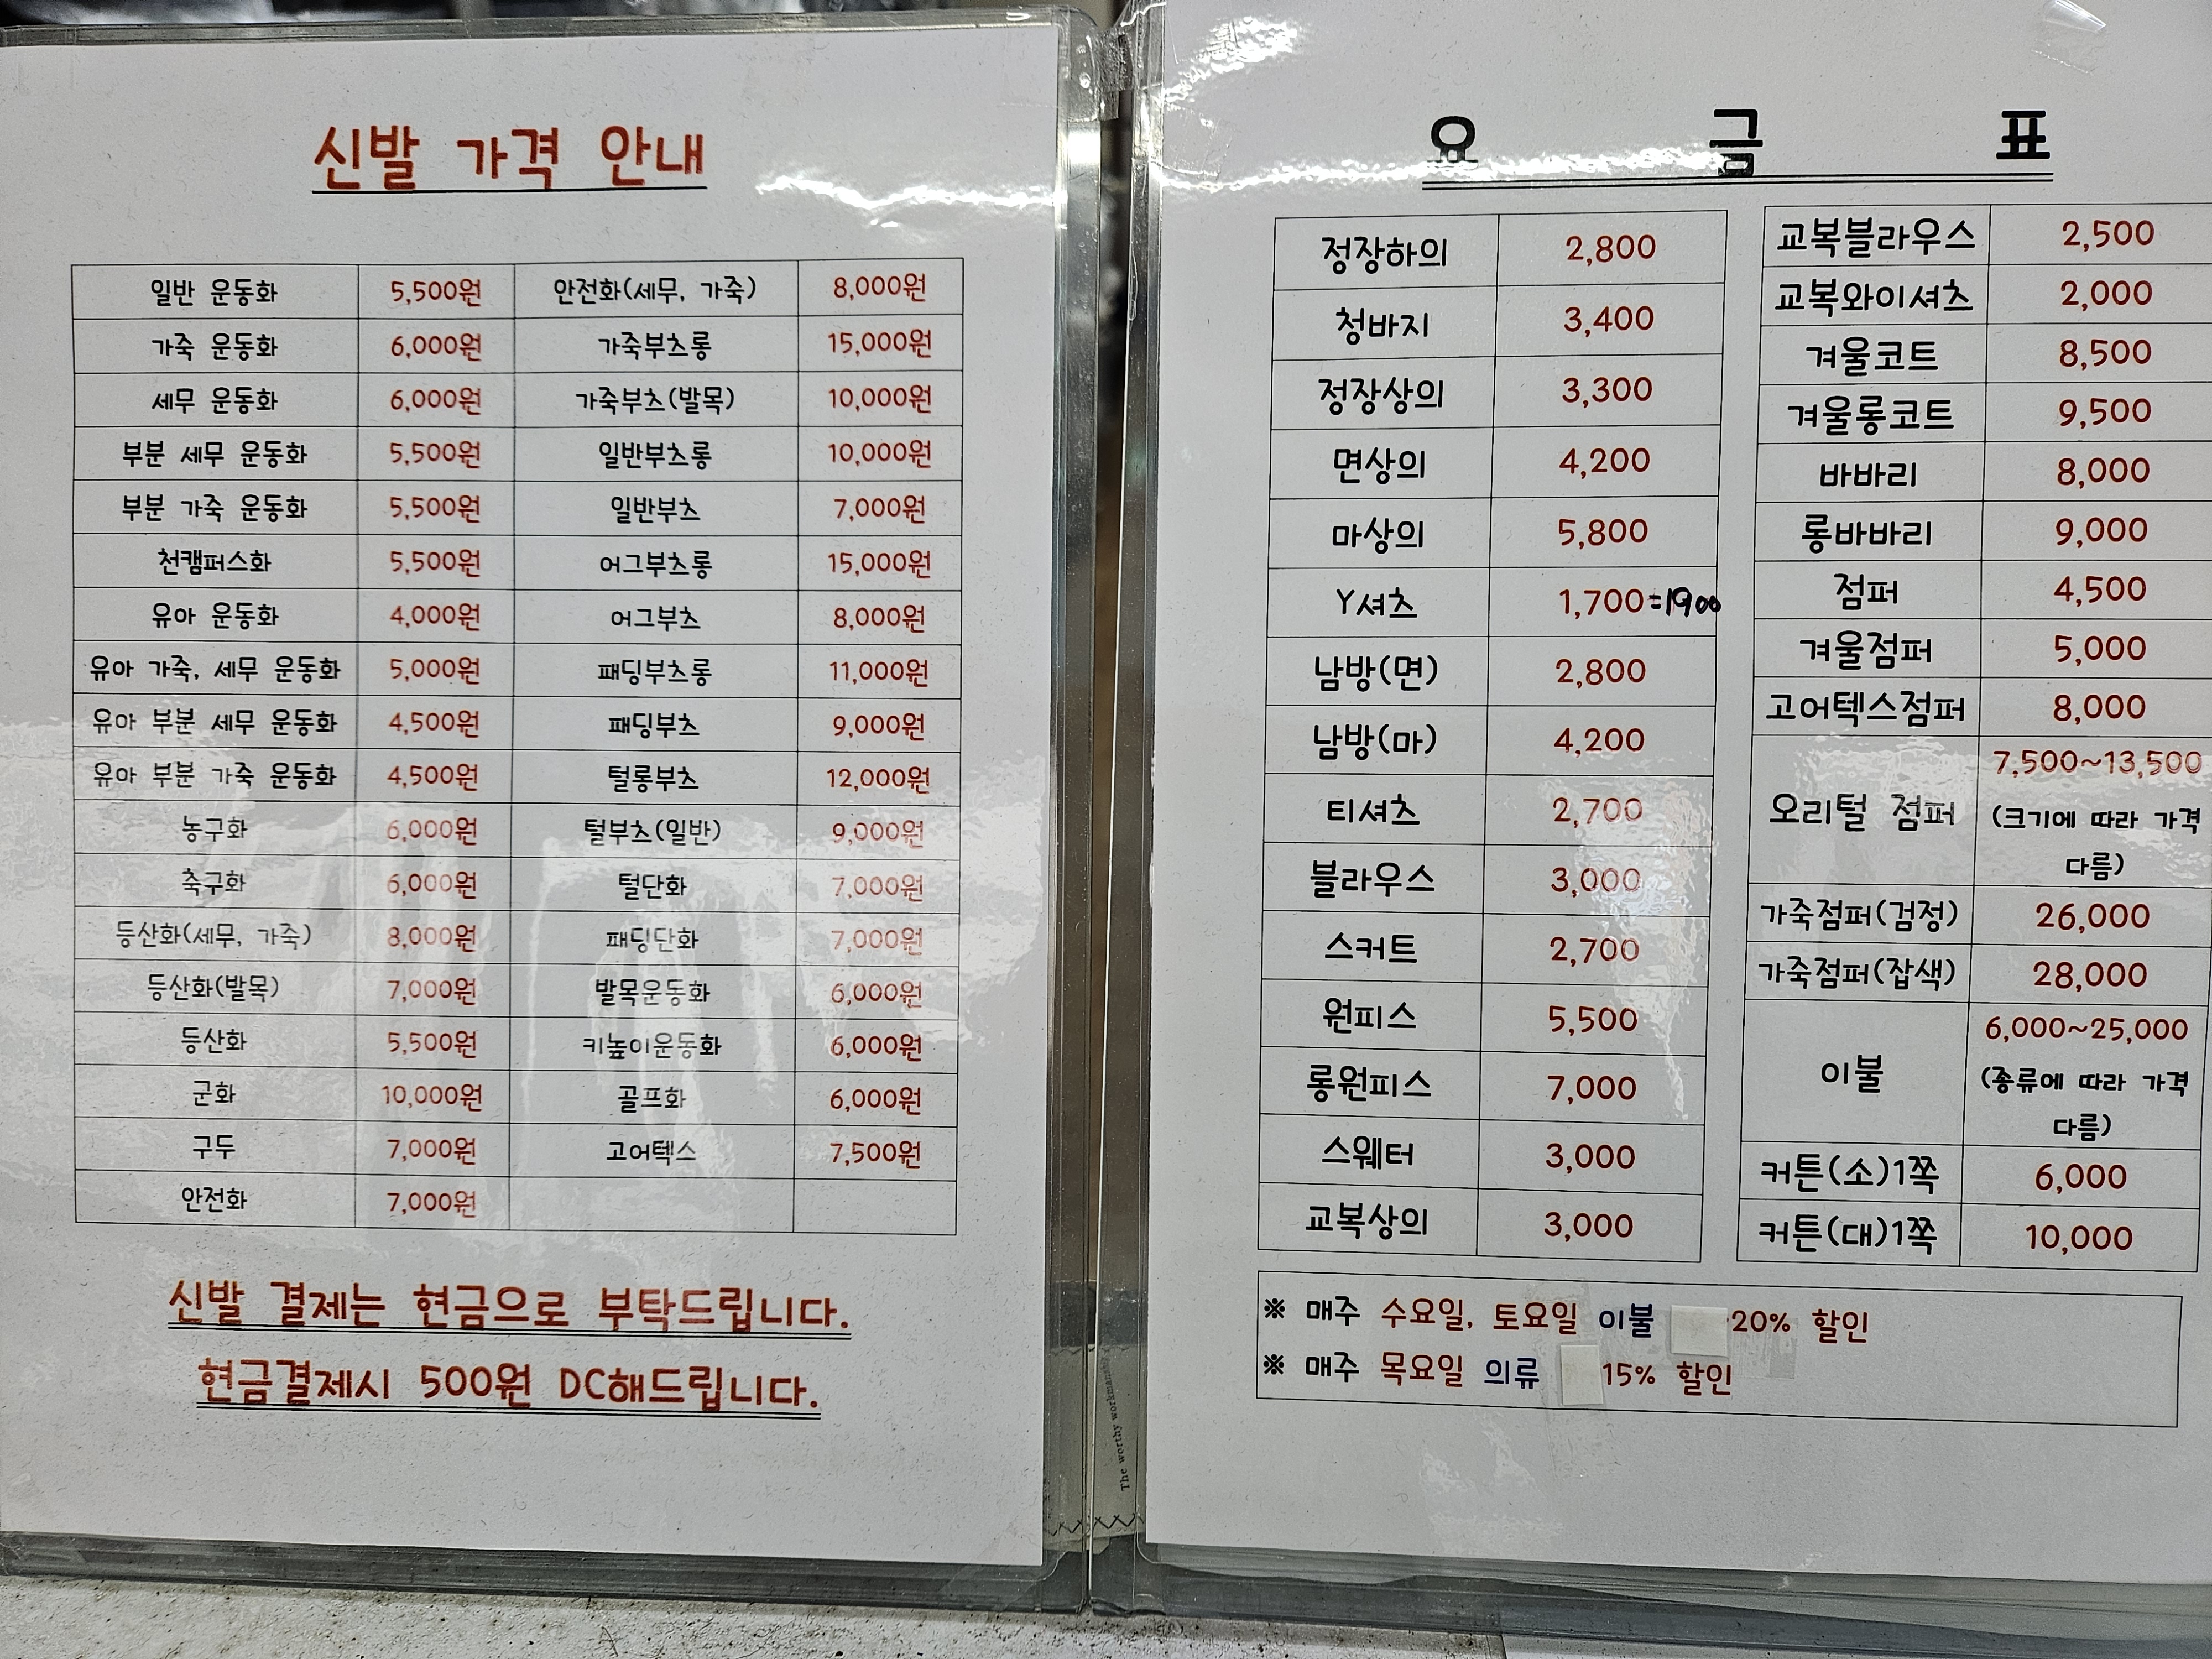 신발 가격 안내
일반 운동화 5,500원 안전화(세무, 가죽) 8,000원
가죽 운동화 6,000원 가죽부츠롱 15,000원
세무 운동화 6,000원 가죽부츠(발목) 10,000원
부분 세무 운동화 5,500원 일반부츠롱 10,000원
부분 가죽 운동화 5,500원 일반부츠 7,000원
천캠퍼스화 5,500원 어그부츠롱 15,000원
유아 운동화 4,000원 어그부츠 8,000원
유아 가죽, 세무 운동화 5,000원 패딩부츠롱 11,000원
유아 부분 세무 운동화 4,500원 패딩부츠 9,000원
유아 부분 가죽 운동화 4,500원 털롱부츠 12,000원
농구화 6,000원 털부츠(일반) 9,000원
축구화 6,000원 털단화 7,000원
등산화(세무, 가죽) 8,000원 패딩단화 7,000원
등산화(발목) 7,000원 발목운동화 6,000원
등산화 5,500원 키높이운동화 6,000원
군화 10,000원 골프화 6,000원
구두 7,000원 고어텍스 7,500원
안전화 7,000원
신발 결제는 현금으로 부탁드립니다.
현금결제시 500원 DC해드립니다.
The worthy workmanship
요 금 표
정장하의 2,800
청바지 3,400
정장상의 3,300
면상의 4,200
마상의 5,800
Y셔츠 1,700=1900
남방(면) 2,800
남방(마) 4,200
티셔츠 2,700
블라우스 3,000
스커트 2,700
원피스 5,500
롱원피스 7,000
스웨터 3,000
교복상의 3,000
교복블라우스 2,500
교복와이셔츠 2,000
겨울코트 8,500
겨울롱코트 9,500
바바리 8,000
롱바바리 9,000
점퍼 4,500
겨울점퍼 5,000
고어텍스점퍼 8,000
오리털 점퍼 7,500~13,500
(크기에 따라 가격
다름)
가죽점퍼(검정) 26,000
가죽점퍼(잡색) 28,000
이불 6,000~25,000
(종류에 따라 가격
다름)
커튼(소)1쪽 6,000
커튼(대)1쪽 10,000
※ 매주 수요일, 토요일 이불 20% 할인
※ 매주 목요일 의류 15% 할인